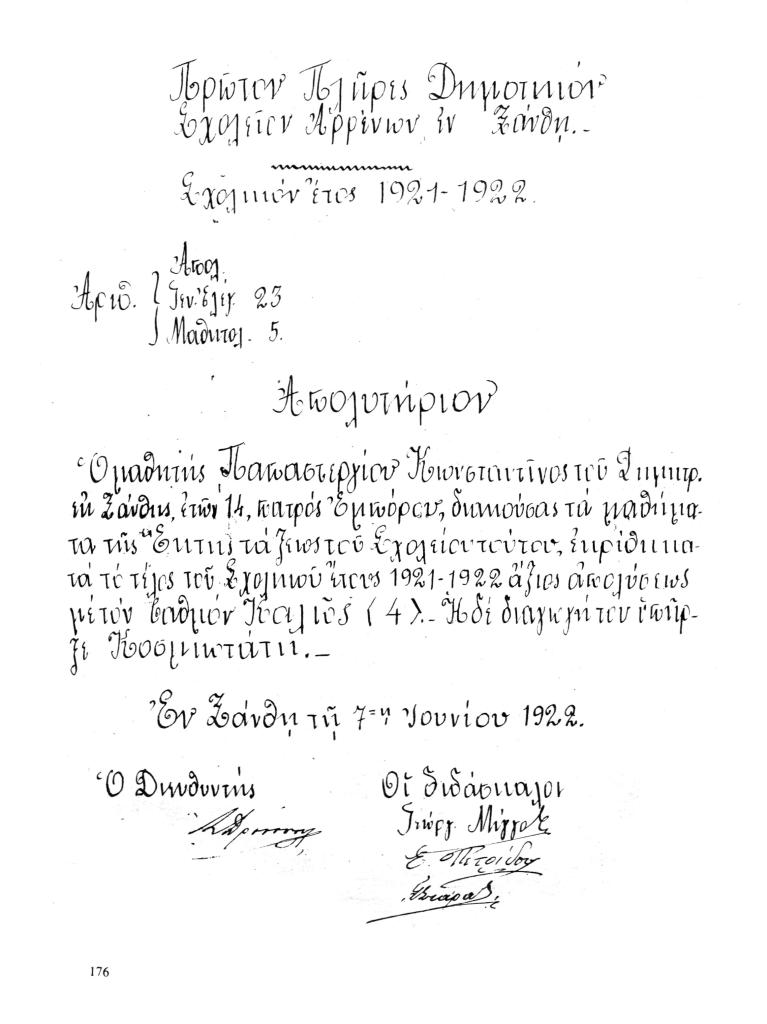 Πρῶτον Πλῆρες Δημοτικόν
Σχολεῖον Ἀρρένων ἐν Ξάνθῃ.-
Σχολικόν ἔτος 1921-1922.
Ἀριθ. { Ἀπολ.
Γεν. Ἐλέγ. 23
Μαθητολ. 5.
Ἀπολυτήριον
Ὁ μαθητής Παπαστεργίου Κωνσταντῖνος τοῦ Δημητρ.
ἐκ Ξάνθης, ἐτῶν 14, πατρός Ἐμπόρου, διακούσας τά μαθήμα-
τα τῆς Ἕκτης τάξεως τοῦ Σχολείου τούτου, ἐκρίθη κα-
τά τό τέλος τοῦ Σχολικοῦ ἔτους 1921-1922 ἄξιος ἀπολύσεως
μέ τόν βαθμόν Καλῶς (4).- Ἡ δέ διαγωγή του ὑπῆρ-
ξε Κοσμιωτάτη.-
Ἐν Ξάνθῃ τῇ 7ῃ Ἰουνίου 1922.
Ὁ Διευθυντής
Οἱ διδάσκαλοι
Γεώργ.
Ε. Πετρίδου
176